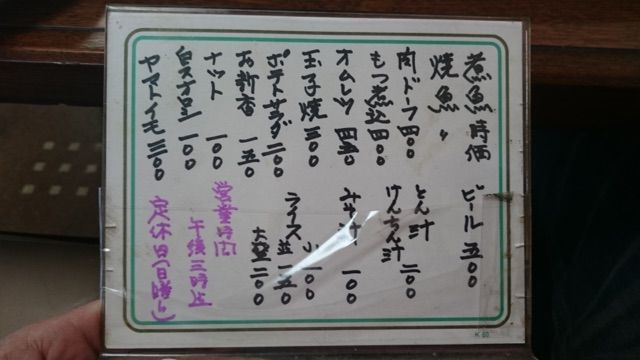 煮魚 時価
焼魚 〃
肉ドーフ 四〇〇
もつ煮込 四〇〇
オムレツ 四五〇
玉子焼 三〇〇
ポテトサラダ 二〇〇
お新香 一五〇
ナットー 一〇〇
白スオロシ 一〇〇
ヤマトイモ 三〇〇
ビール 五〇〇
とん汁
けんちん汁 二〇〇
みそ汁 一〇〇
ライス 小 一〇〇
並 一五〇
大盛 二〇〇
営業時間
午後三時迄
定休日(日曜日)
K 60